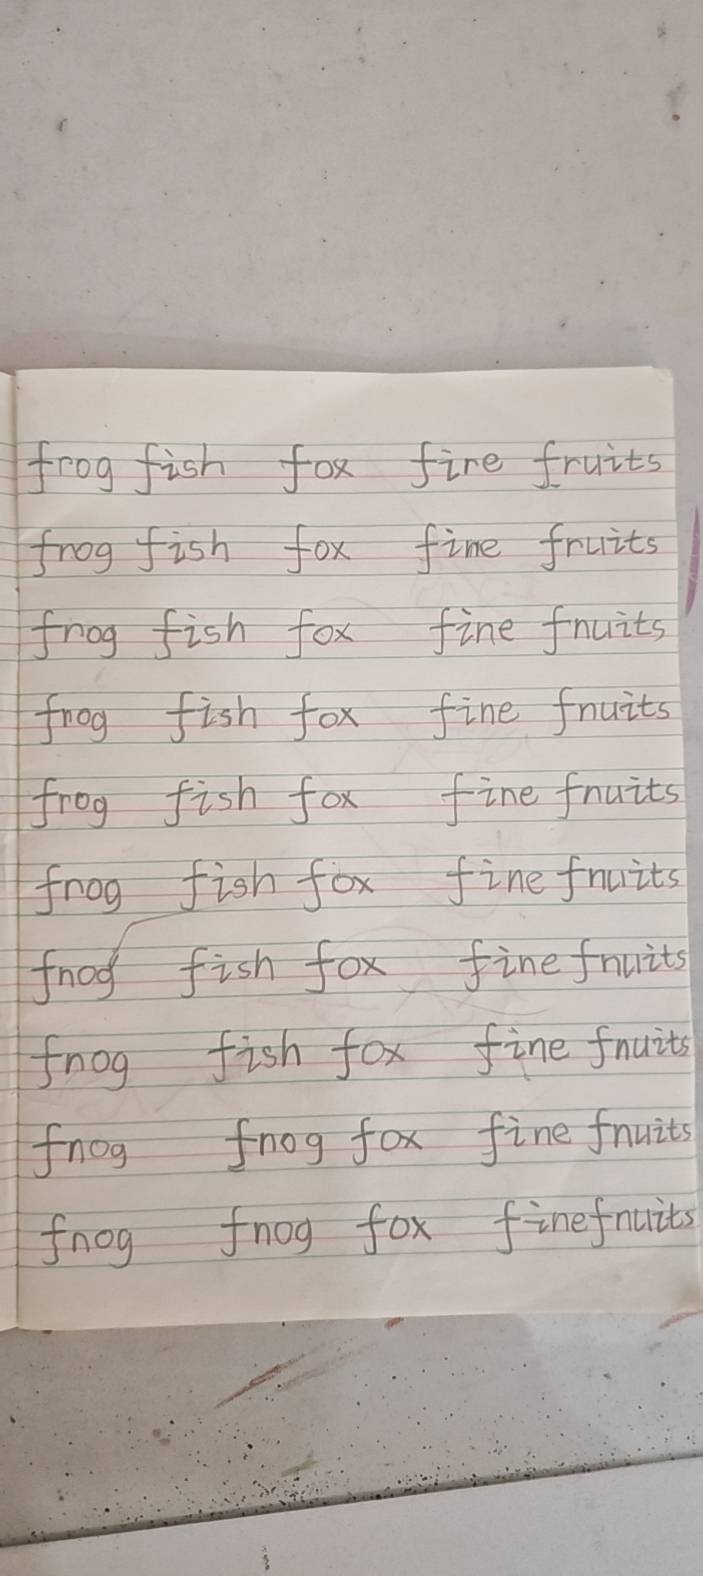 frog fish fox fire fruits
frog fish fox fine fruits
frog fish fox fine fnuits
fnog fish fox fine fnuits
frog fish fox fine fnuits
fnog fish fox fine fnuits
fnog fish fox fine fnuits
fnog fish fox fine fnuits
fnog fnog fox fine fnuits
fnog fnog fox fine fnuits